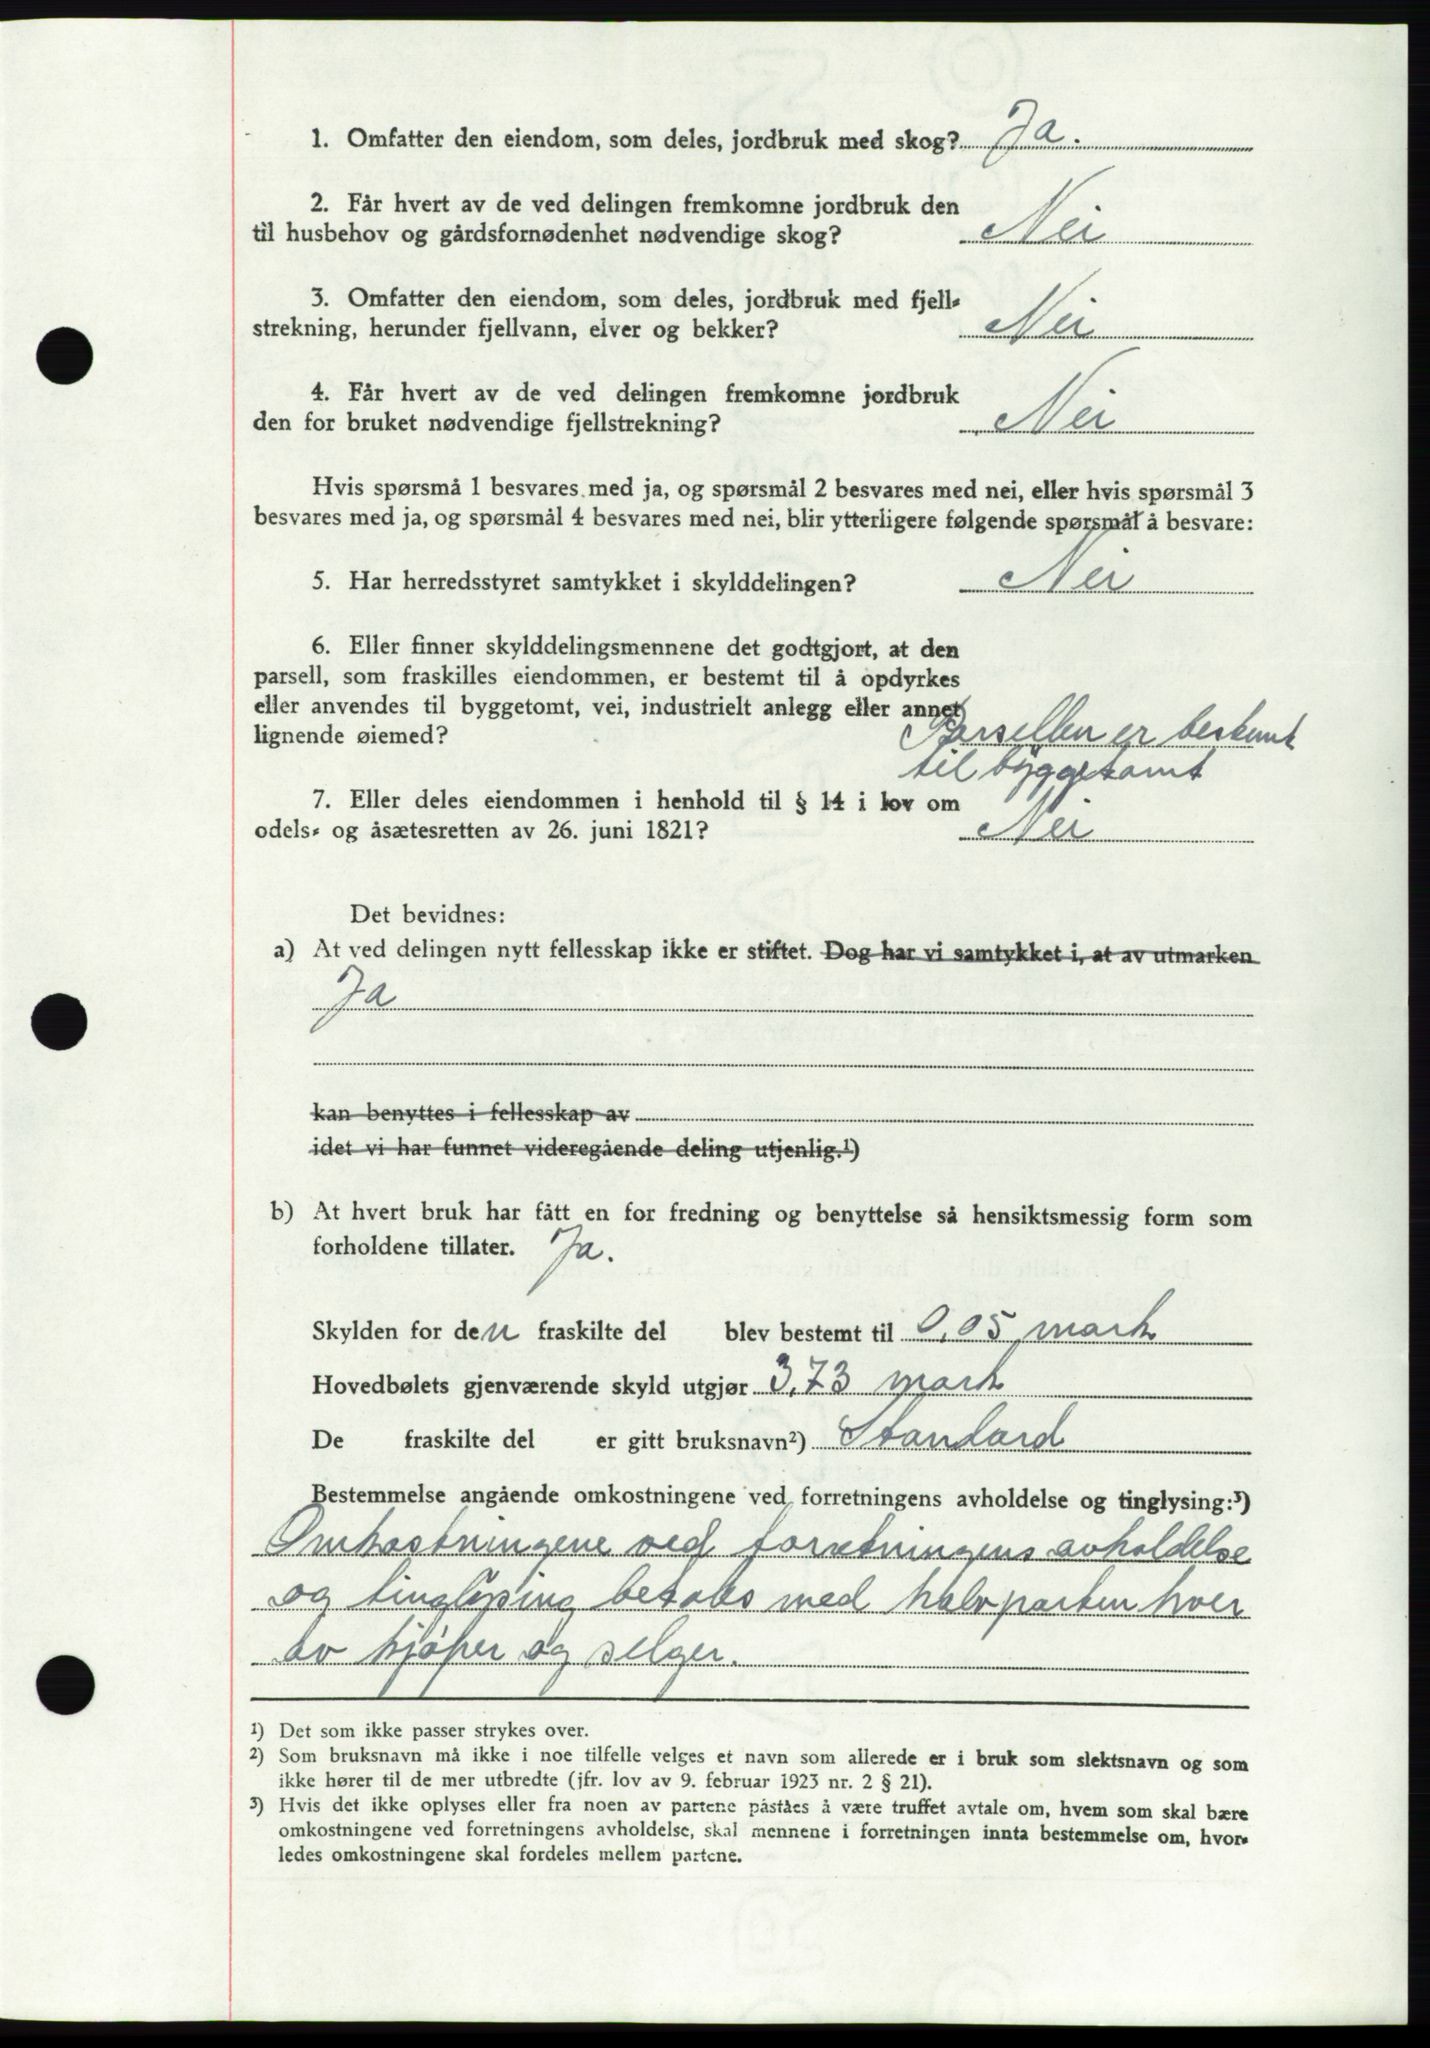 1. Omfatter den eiendom, som deles, jordbruk med skog? Ja.
2. Får hvert av de ved delingen fremkomne jordbruk den
til husbehov og gårdsfornødenhet nødvendige skog? Nei
3. Omfatter den eiendom, som deles, jordbruk med fjell-
strekning, herunder fjellvann, elver og bekker? Nei
4. Får hvert av de ved delingen fremkomne jordbruk
den for bruket nødvendige fjellstrekning? Nei
Hvis spørsmå 1 besvares med ja, og spørsmål 2 besvares med nei, eller hvis spørsmål 3
besvares med ja, og spørsmål 4 besvares med nei, blir ytterligere følgende spørsmål å besvare:
5. Har herredsstyret samtykket i skylddelingen? Nei
6. Eller finner skylddelingsmennene det godtgjort, at den
parsell, som fraskilles eiendommen, er bestemt til å opdyrkes
eller anvendes til byggetomt, vei, industrielt anlegg eller annet
lignende øiemed? Parsellen er bestemt
til byggetomt
7. Eller deles eiendommen i henhold til § 14 i lov om
odels- og åsætesretten av 26. juni 1821? Nei
Det bevidnes:
a) At ved delingen nytt fellesskap ikke er stiftet. Dog har vi samtykket i, at av utmarken
Ja
kan benyttes i fellesskap av
idet vi har funnet videregående deling utjenlig.¹)
b) At hvert bruk har fått en for fredning og benyttelse så hensiktsmessig form som
forholdene tillater. Ja.
Skylden for den fraskilte del blev bestemt til 0,05 mark
Hovedbølets gjenværende skyld utgjør 3,73 mark
De fraskilte del er gitt bruksnavn²) Standard
Bestemmelse angående omkostningene ved forretningens avholdelse og tinglysing:³)
Omkostningene ved forretningens avholdelse
og tinglysing betales med halvparten hver
av kjøper og selger.
¹) Det som ikke passer strykes over.
²) Som bruksnavn må ikke i noe tilfelle velges et navn som allerede er i bruk som slektsnavn og som
ikke hører til de mer utbredte (jfr. lov av 9. februar 1923 nr. 2 § 21).
³) Hvis det ikke oplyses eller fra noen av partene påståes å være truffet avtale om, hvem som skal bære
omkostningene ved forretningens avholdelse, skal mennene i forretningen innta bestemmelse om, hvor-
ledes omkostningene skal fordeles mellem partene.